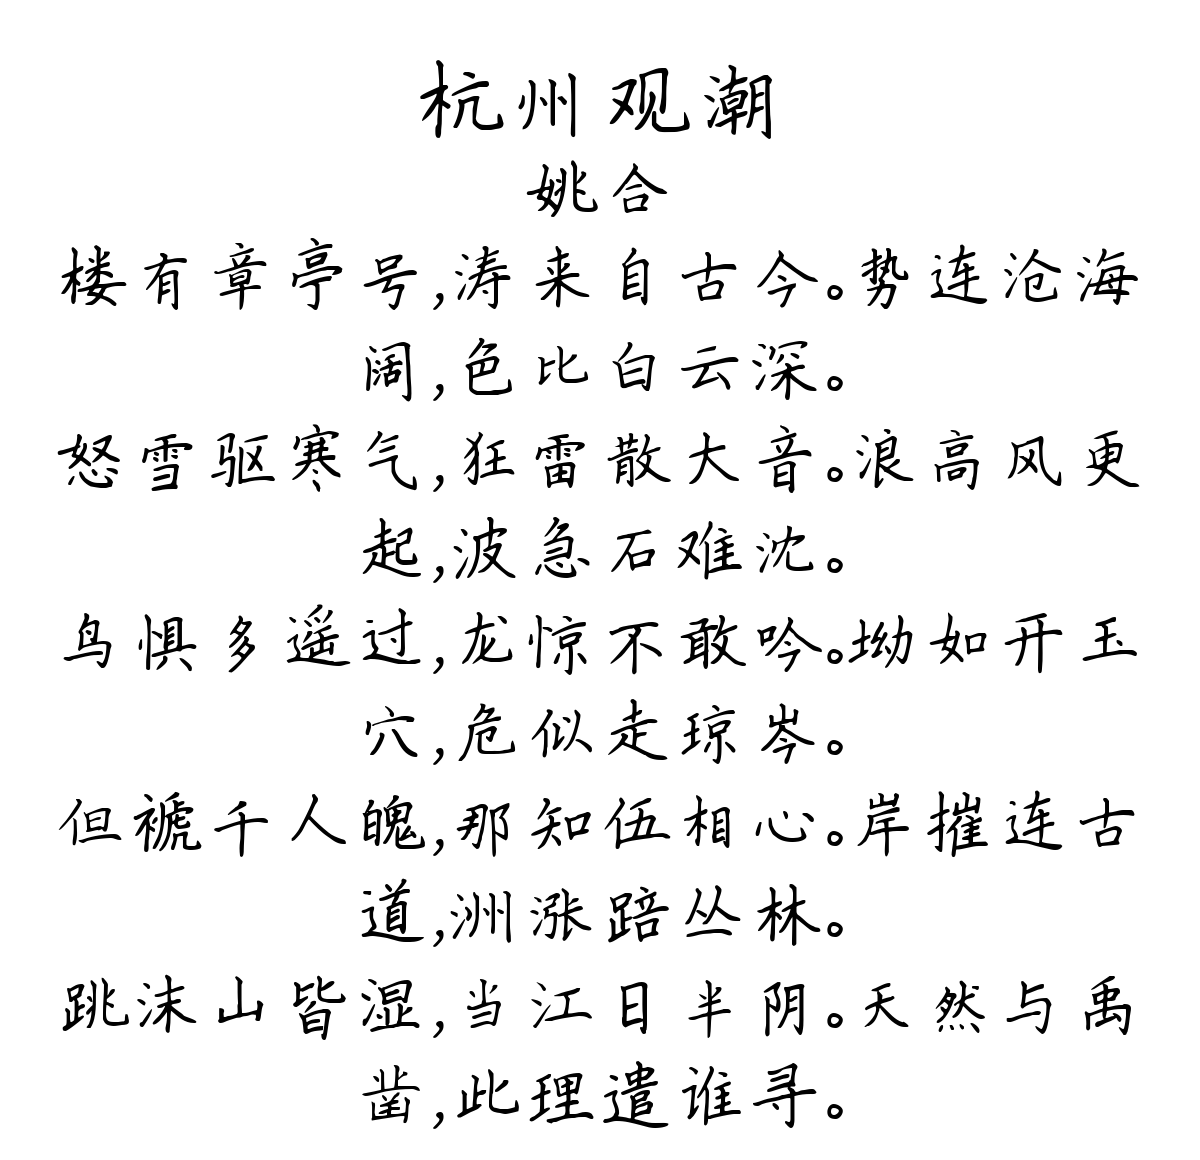 杭州观潮
姚合
楼有章亭号,涛来自古今。势连沧海
阔,色比白云深。
怒雪驱寒气,狂雷散大音。浪高风更
起,波急石难沈。
鸟惧多遥过,龙惊不敢吟。坳如开玉
穴,危似走琼岑。
但褫千人魄,那知伍相心。岸摧连古
道,洲涨踣丛林。
跳沫山皆湿,当江日半阴。天然与禹
凿,此理遣谁寻。